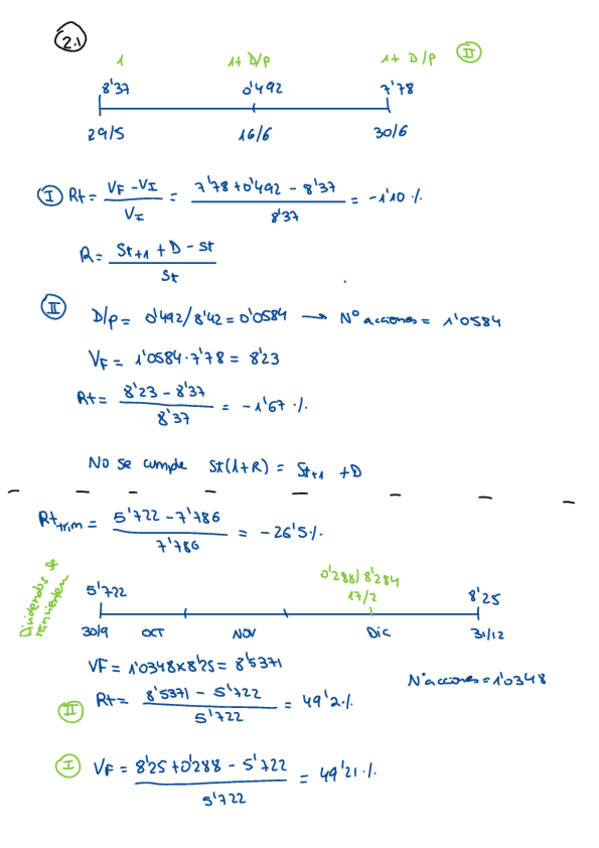 2.1
1 1+ D/P 1+ D/P II
8'37 0'492 7'78
29/5 16/6 30/6
I Rt = (VF - VI) / VI = (7'78 + 0'492 - 8'37) / 8'37 = -1'10 %
R = (St+1 + D - St) / St
II D/p = 0'492/8'42 = 0'0584 → Nº acciones = 1'0584
VF = 1'0584 · 7'78 = 8'23
Rt = (8'23 - 8'37) / 8'37 = -1'67 %
No se cumple St(1+R) = St+1 + D
Rt trim = (5'722 - 7'786) / 7'786 = -26'5 %
Dividendos se reinvierten
0'288/8'284
5'722 17/2 8'25
30/9 OCT NOV Dic 31/12
VF = 1'0348 x 8'25 = 8'5371
Nº acciones = 1'0348
II Rt = (8'5371 - 5'722) / 5'722 = 49'2 %
I VF = (8'25 + 0'288 - 5'722) / 5'722 = 49'21 %